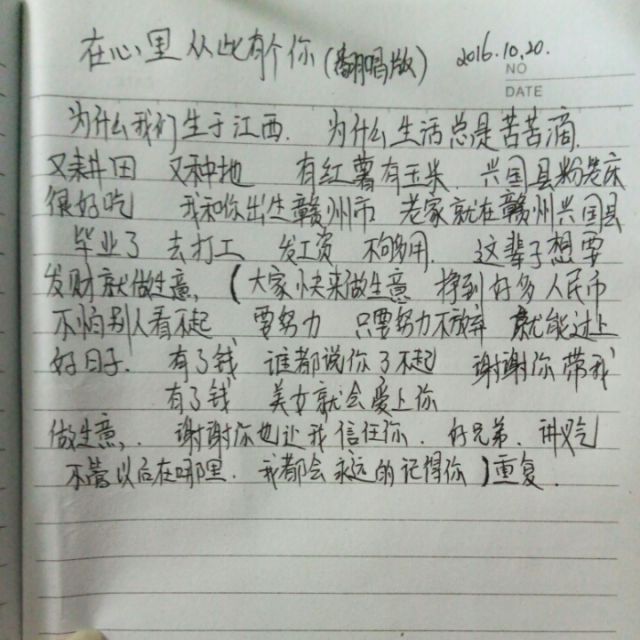 在心里从此有个你(翻唱版) 2016.10.20.
NO
DATE
为什么我们生于江西. 为什么生活总是苦苦滴.
又耕田 又种地 有红薯有玉米. 兴国县粉蒸床
很好吃 我和你出生赣州市 老家就在赣州兴国县
毕业了 去打工 发工资 不够用. 这辈子想要
发财就做生意,(大家快来做生意 挣到好多人民币
不怕别人看不起 要努力 只要努力不放弃 就能过上
好日子. 有了钱 谁都说你了不起 谢谢你带我
有了钱 美女就会爱上你
做生意,. 谢谢你也让我信任你. 好兄弟. 讲义气
不管以后在哪里. 我都会永远的记得你)重复.